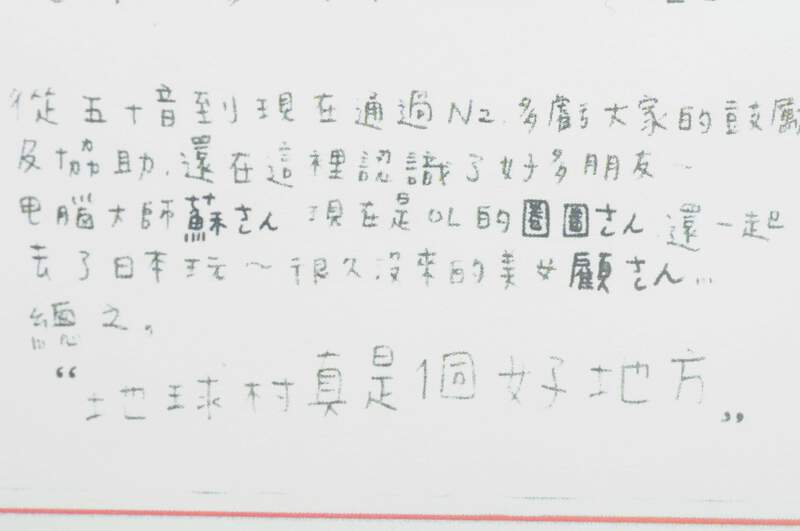 從五十音到現在通過N2,多虧大家的鼓勵
及協助,還在這裡認識了好多朋友~
电腦大師蘇さん 現在是OL的圈圈さん 還一起
去了日本玩~很久没來的美女顧さん...
總之。
“地球村真是1個好地方”